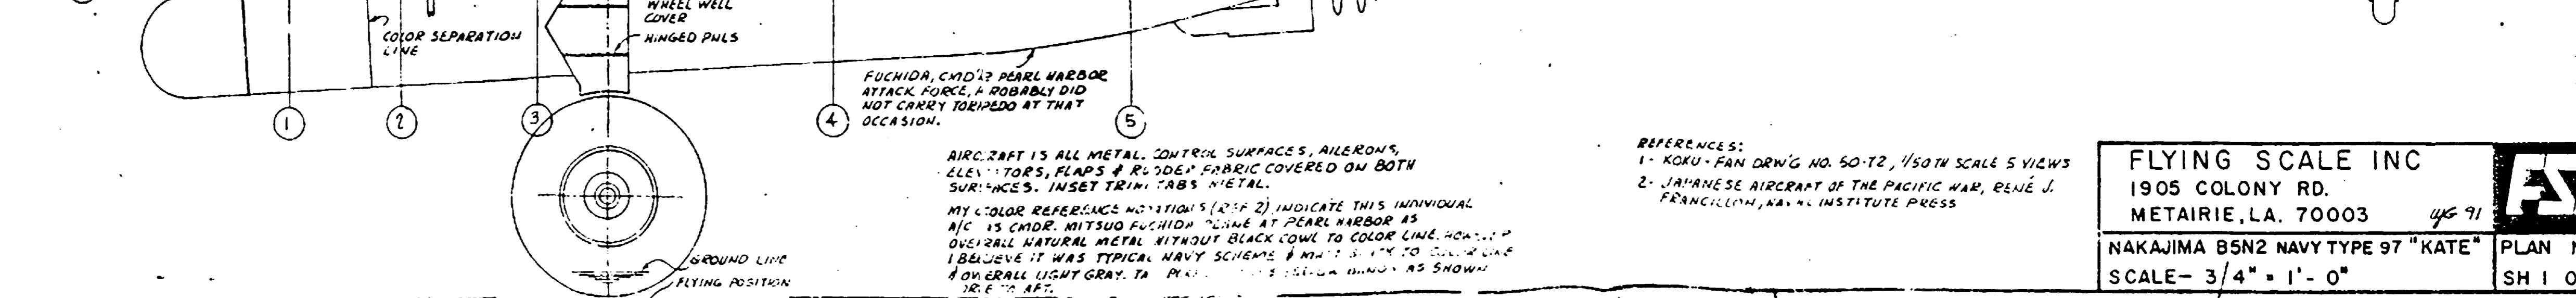 WHEEL WELL
COVER
HINGED PNLS
COLOR SEPARATION
LINE
FUCHIDA, CMD'R PEARL HARBOR
ATTACK FORCE, PROBABLY DID
NOT CARRY TORPEDO AT THAT
OCCASION.
1
2
3
4
5
AIRCRAFT IS ALL METAL. CONTROL SURFACES, AILERONS,
ELEVATORS, FLAPS & RUDDER FABRIC COVERED ON BOTH
SURFACES. INSET TRIM TABS METAL.
MY COLOR REFERENCE NOTATIONS (REF 2) INDICATE THIS INDIVIDUAL
A/C IS CMDR. MITSUO FUCHIDA PLANE AT PEARL HARBOR AS
OVERALL NATURAL METAL WITHOUT BLACK COWL TO COLOR LINE. HOWEVER
I BELIEVE IT WAS TYPICAL NAVY SCHEME & TO COLOR LINE
& OVERALL LIGHT GRAY. AS SHOWN
AFT.
GROUND LINE
FLYING POSITION
REFERENCES:
1- KOKU-FAN DRW'G NO. 50-72, 1/50TH SCALE 5 VIEWS
2- JAPANESE AIRCRAFT OF THE PACIFIC WAR, RENÉ J.
FRANCILLON, NAVAL INSTITUTE PRESS
FLYING SCALE INC
1905 COLONY RD.
METAIRIE, LA. 70003 91
FS
NAKAJIMA B5N2 NAVY TYPE 97 "KATE"
PLAN
SCALE- 3/4" = 1'- 0"
SH 1